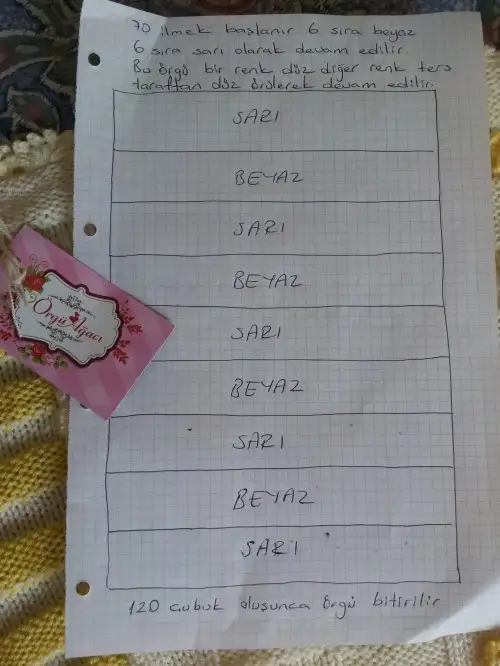 70 ilmek başlanır 6 sıra beyaz
6 sıra sarı olarak devam edilir.
Bu örgü bir renk düz diğer renk ters
taraftan düz örülerek devam edilir.
SARI
BEYAZ
SARI
BEYAZ
SARI
BEYAZ
SARI
BEYAZ
SARI
120 çubuk oluşunca örgü bitirilir
Örgü Ağacı